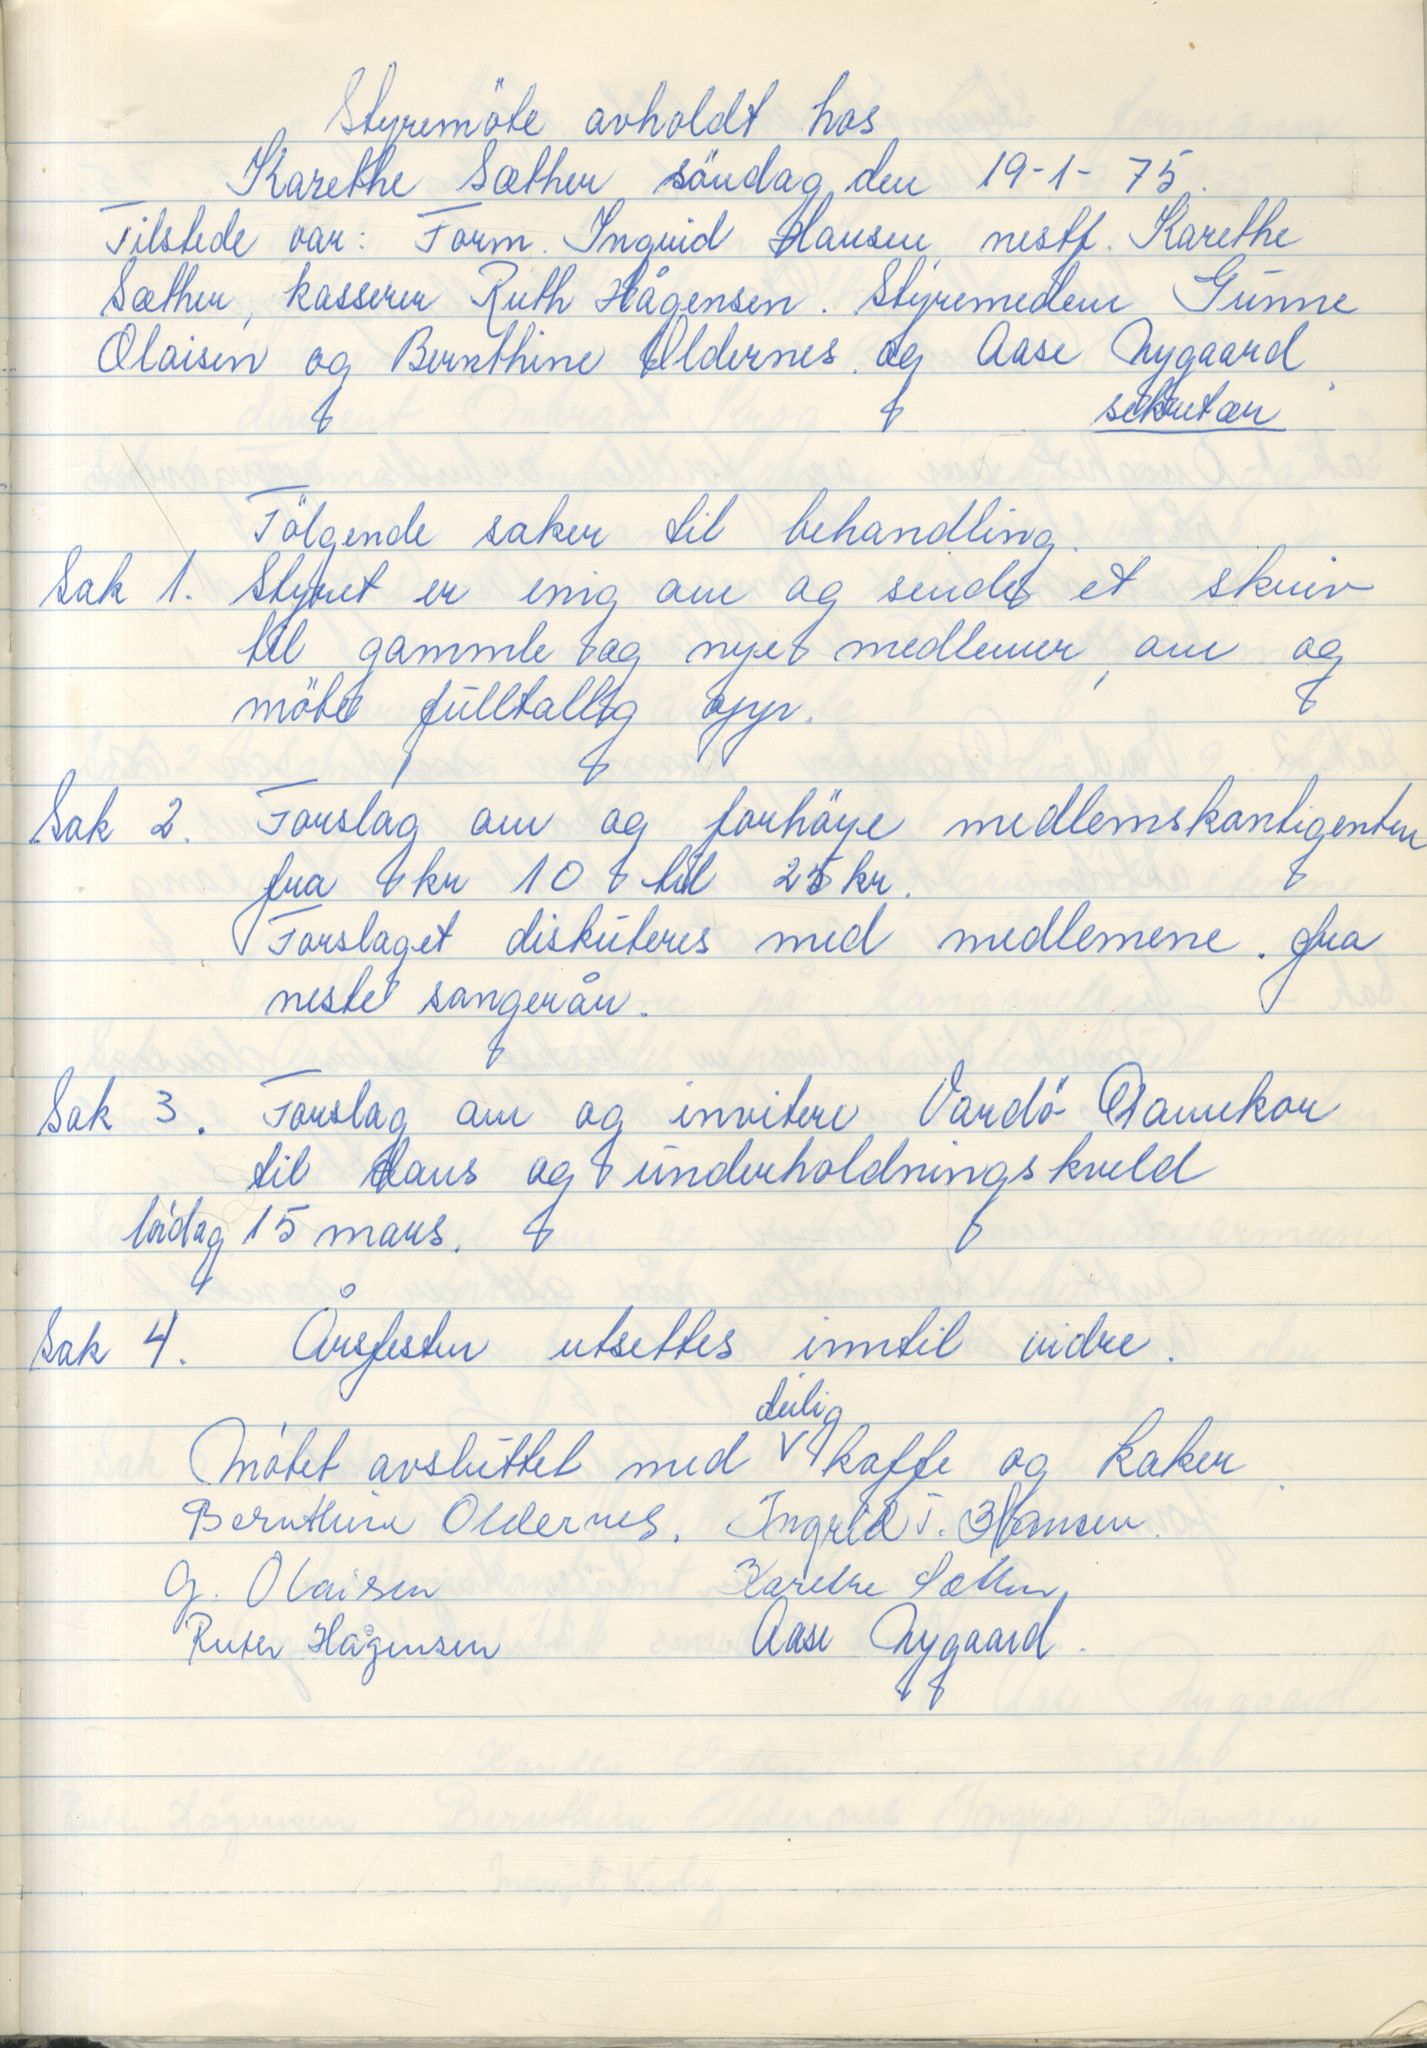 Styremöte avholdt hos
Karethe Sæther söndag den 19-1-75.
Tilstede var: Form. Ingrid Hansen, nestf. Karethe
Sæther, kasserer Ruth Hågensen. Styremedlem Gunne
Olaisen og Bernthine Oldernes. og Aase Nygaard.
sekretær
Fölgende saker til behandling.
Sak 1. Styret er enig om og sende et skriv
til gammle og nye medlemer, om og
möte fulltallig opp.
Sak 2. Forslag om og forhöye medlemskontigenten
fra kr 10 til 25 kr.
Forslaget diskuteres med medlemene. fra
neste sangerår.
Sak 3. Forslag om og invitere Vardö Damekor
til dans og underholdningskveld
lördag 15 mars.
Sak 4. Årsfesten utsettes inntil vidre.
deilig
Mötet avsluttet med V kaffe og kaker.
Bernthine Oldernes. Ingrid T. Hansen.
G. Olaisen Karethe Sæther
Ruth Hågensen Aase Nygaard.